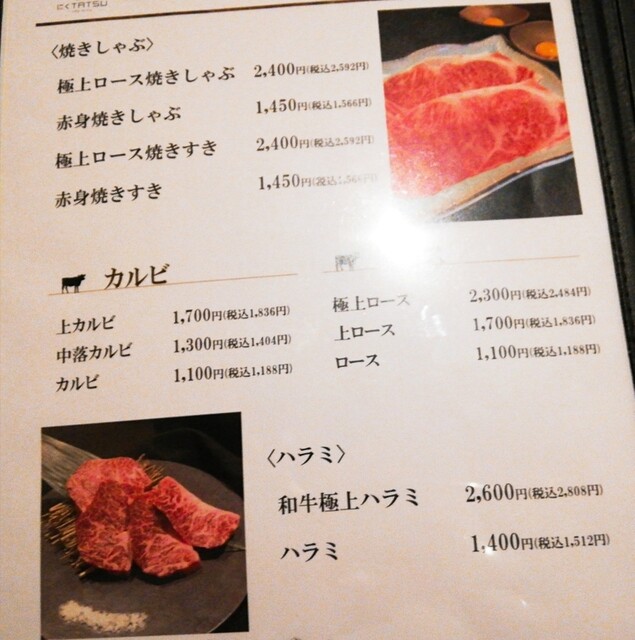 にくTATSU
〈焼きしゃぶ〉
極上ロース焼きしゃぶ 2,400円(税込2,592円)
赤身焼きしゃぶ 1,450円(税込1,566円)
極上ロース焼きすき 2,400円(税込2,592円)
赤身焼きすき 1,450円(税込
カルビ
上カルビ 1,700円(税込1,836円)
中落カルビ 1,300円(税込1,404円)
カルビ 1,100円(税込1,188円)
極上ロース 2,300円(税込2,484円)
上ロース 1,700円(税込1,836円)
ロース 1,100円(税込1,188円)
〈ハラミ〉
和牛極上ハラミ 2,600円(税込2,808円)
ハラミ 1,400円(税込1,512円)